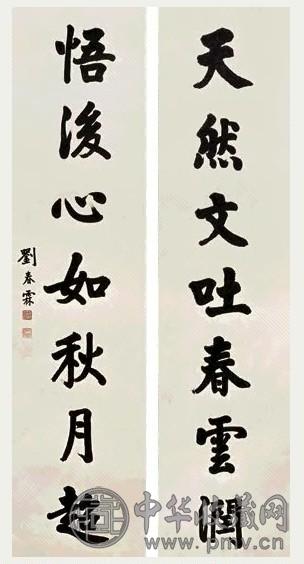 天然文吐春雲
悟後心如秋月
劉春霖
中华收藏网
www.pmv.cn